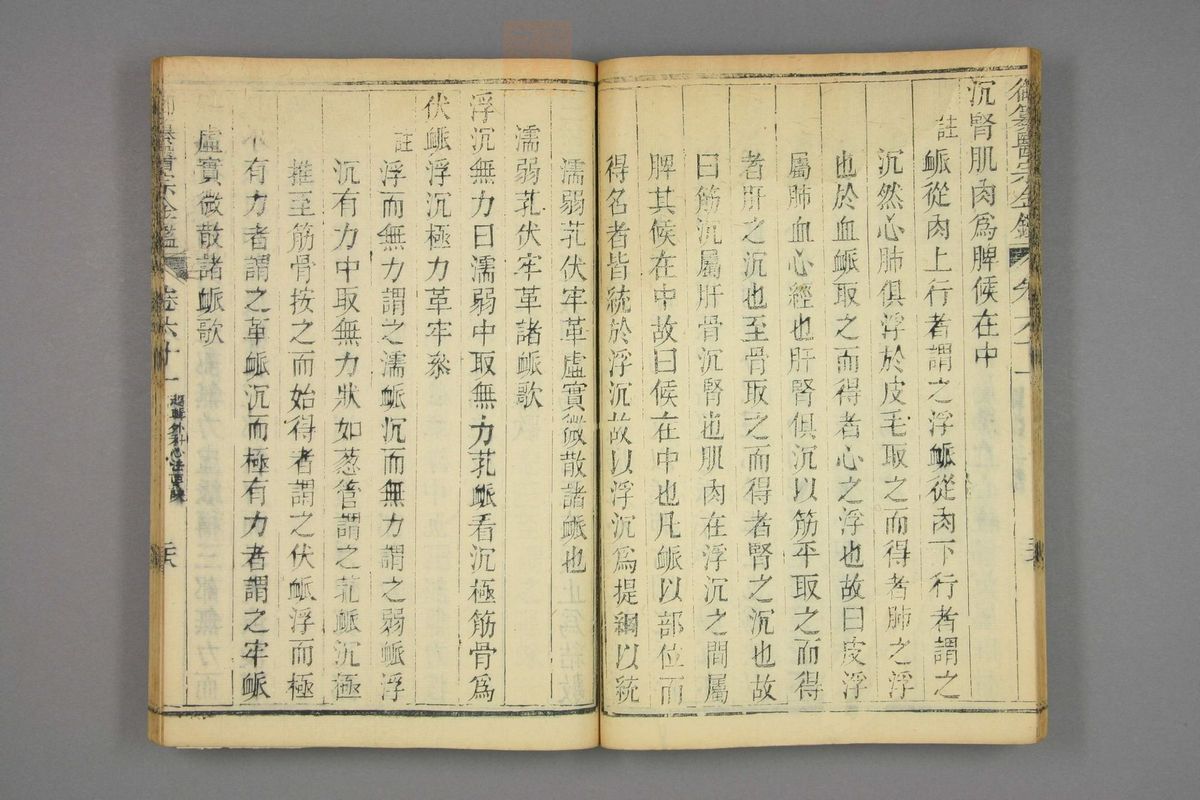 御纂醫宗金鑑
沉腎肌肉爲脾候在中
註
脈從肉上行者謂之浮脈從肉下行者謂之
沉然心肺俱浮於皮毛取之而得者肺之浮
也於血脈取之而得者心之浮也故曰皮浮
屬肺血心經也肝腎俱沉以筋平取之而得
者肝之沉也至骨取之而得者腎之沉也故
曰筋沉屬肝骨沉腎也肌肉在浮沉之間屬
脾其候在中故曰候在中也凡脈以部位而
得名者皆統於浮沉故以浮沉爲提綱以統
濡弱芤伏牢革虛實微散諸脈也
濡弱芤伏牢革諸脈歌
浮沉無力曰濡弱中取無力芤脈看沉極筋骨爲
伏脈浮沉極力革牢叅
註
浮而無力謂之濡脈沉而無力謂之弱脈浮
沉有力中取無力狀如葱管謂之芤脈沉極
推至筋骨按之而始得者謂之伏脈浮而極
有力者謂之革脈沉而極有力者謂之牢脈
虛實微散諸脈歌
御纂醫宗金鑑
卷六十一
編輯外科心法要訣